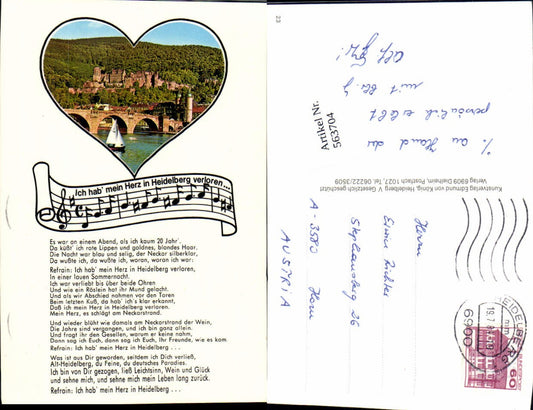 Ich hab' mein Herz in Heidelberg verloren...
Es war an einem Abend, als ich kaum 20 Jahr'.
Da küßt' ich rote Lippen und goldnes, blondes Haar.
Die Nacht war blau und selig, der Neckar silberklar,
Da wußte ich, da wußte ich, woran, woran ich war:
Refrain: Ich hab' mein Herz in Heidelberg verloren,
In einer lauen Sommernacht.
Ich war verliebt bis über beide Ohren
Und wie ein Röslein hat ihr Mund gelacht.
Und als wir Abschied nahmen vor den Toren
Beim letzten Kuß, da hab' ich's klar erkannt,
Daß ich mein Herz in Heidelberg verloren.
Mein Herz, es schlägt am Neckarstrand.
Und wieder blüht wie damals am Neckarstrand der Wein,
Die Jahre sind vergangen, und ich bin ganz allein.
Und fragt ihr den Gesellen, warum er keine nahm,
Dann sag ich Euch, dann sag ich Euch, Ihr Freunde, wie es kam
Refrain: Ich hab' mein Herz in Heidelberg . . .
Was ist aus Dir geworden, seitdem ich Dich verließ,
Alt-Heidelberg, du Feine, du deutsches Paradies.
Ich bin von Dir gezogen, ließ Leichtsinn, Wein und Glück
und sehne mich, und sehne mich mein Leben lang zurück.
Refrain: Ich hab' mein Herz in Heidelberg . . .
23
persönlich erlebt
mit
Artikel Nr.
563704
Kunstverlag Edmund von König, Heidelberg V Gesetzlich geschützt
Verlag 6909 Dielheim, Postfach 1027, Tel. 06222/3509
Herrn
Stephansberg 26
A - 3580 Horn
AUSTRIA
HEIDELBERG
6900
60